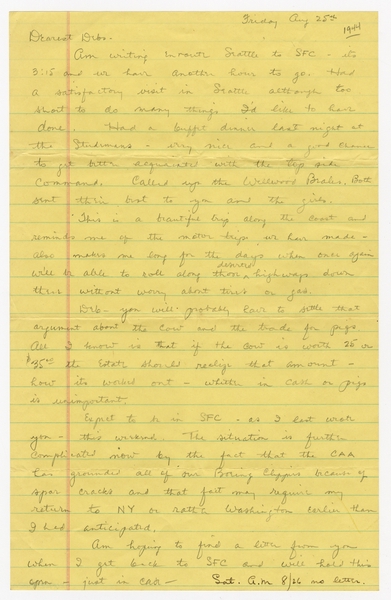 Friday Aug 25th
1944
Dearest Debs-
Am writing enroute Seattle to SFC - its
3:15 and we have another hour to go. Had
a satisfactory visit in Seattle although too
short to do many things I'd like to have
done. Had a buffet dinner last night at
the - very nice and a good chance
to get better acquainted with the top side
command. Called upon the Wellwood Beales. Both
sent their best to you and the girls.
This is a beautiful trip along the coast and
reminds me of the motor trips we have made -
also makes me long for the days when once again
will be able to roll along those deserted highways down
there without worry about tires or gas.
Deb - you will probably have to settle that
argument about the cow and the trade for pigs.
All I know is that if the cow is worth 25 or
$35.00 the Estate should realize that amount -
how its worked out - whether in cash or pigs
is unimportant.
Expect to be in SFC - as I last wrote
you - this weekend. The situation is further
complicated now by the fact that the CAA
has grounded all of our Boeing Clippers because of
spar cracks and that fact may require my
return to NY or rather Washington earlier than
I had anticipated.
Am hoping to find a letter from you
when I get back to SFC and will hold this
open - just in case - Sat. A.M. 8/26 no letter.